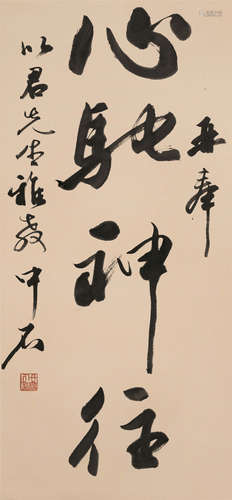 亟奉
心驰神往
以君先生雅教 中石